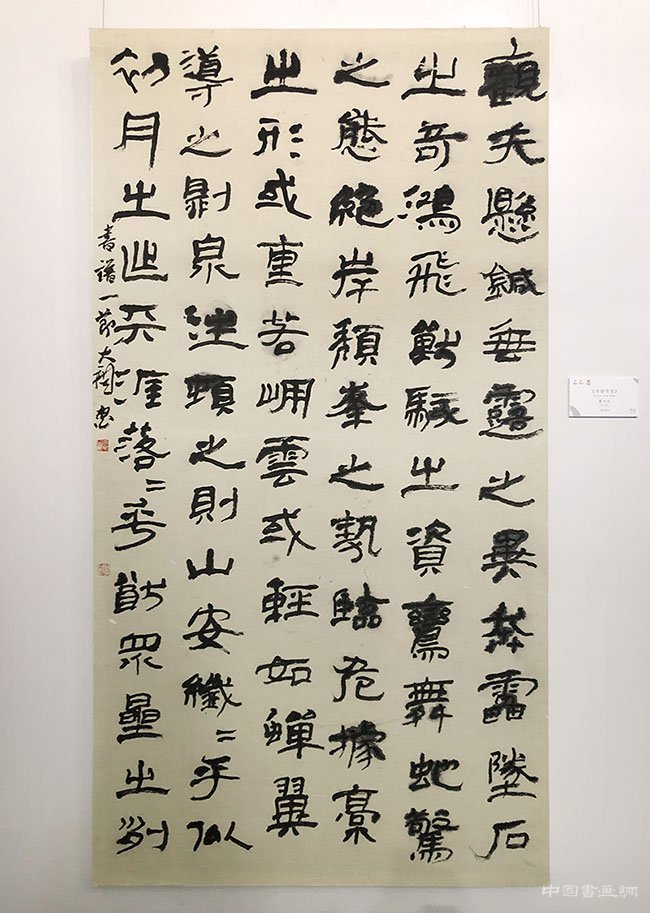 觀夫懸鍼垂露之異奔雷墜石
之奇鴻飛獸駭之資鸞舞蛇驚
之態絕岸頹峯之勢臨危據槁
之形或重若崩雲或輕如蟬翼
導之則泉注頓之則山安纖〻乎似
初月之出天崖落〻乎猶眾星之列
書譜一節大書
中国書画網